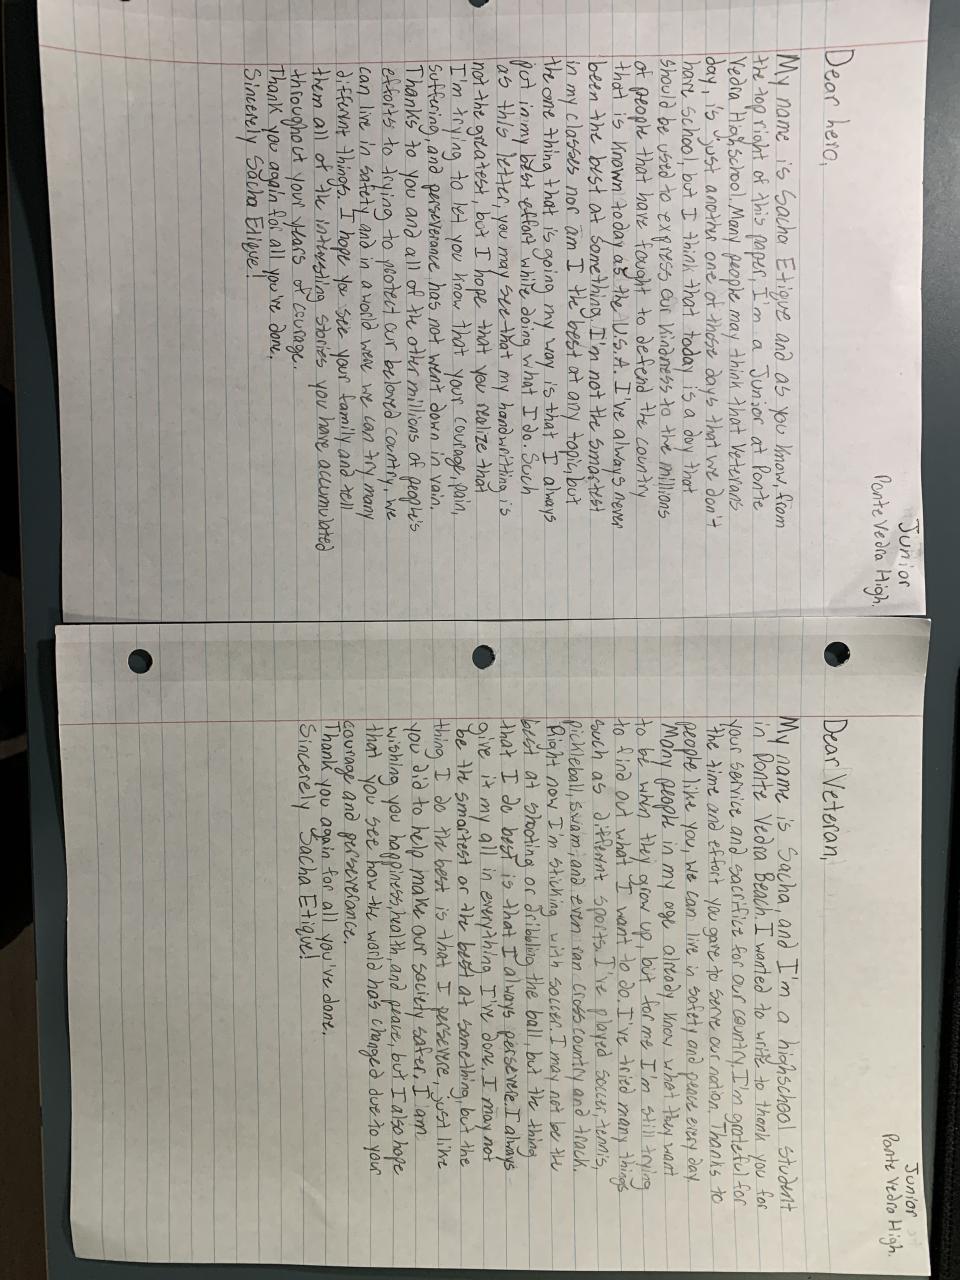 Junior
Ponte Vedra High.
Dear hero,
My name is Sacha Etique and as you know from
the top right of this paper, I'm a Junior at Ponte
Vedra Highschool. Many people may think that Veterans
day, is just another one of those days that we don't
have school, but I think that today is a day that
should be used to express our kindness to the millions
of people that have fought to defend the country
that is known today as the U.S.A. I've always never
been the best at something. I'm not the smartest
in my classes nor am I the best at any topic, but
the one thing that is going my way is that I always
put in my best effort while doing what I do. Such
as this letter, you may see that my handwriting is
not the greatest, but I hope that you realize that
I'm trying to let you know that your courage, pain,
suffering, and perseverance has not went down in vain.
Thanks to you and all of the other millions of people's
efforts to trying to protect our beloved country, we
can live in safety and in a world were we can try many
differnt things. I hope you see your family and tell
them all of the intresting stories you have accumulated
throughout your years of courage.
Thank you again for all you've done.
Sincerely Sacha Etique!
Junior
Ponte Vedra High.
Dear Veteran,
My name is Sacha, and I'm a highschool student
in Ponte Vedra Beach. I wanted to write to thank you for
your service and sacrifice for our country. I'm grateful for
the time and effort you gave to serve our nation. Thanks to
people like you, we can live in safety and peace every day.
Many people in my age already know what they want
to be when they grow up, but for me I'm still trying
to find out what I want to do. I've tried many things
such as differnt sports. I've played soccer, tennis,
pickleball, swam, and even ran cross country and track.
Right now I'm sticking with soccer. I may not be the
best at shooting or dribbling the ball, but the thing
that I do best is that I always persevere. I always
give it my all in everything I've done. I may not
be the smartest or the best at something, but the
thing I do the best is that I persevere, just like
you did to help make our society safer. I am
wishing you happiness, health, and peace, but I also hope
that you see how the world has changed due to your
courage and perserverance.
Thank you again for all you've done.
Sincerely Sacha Etique!